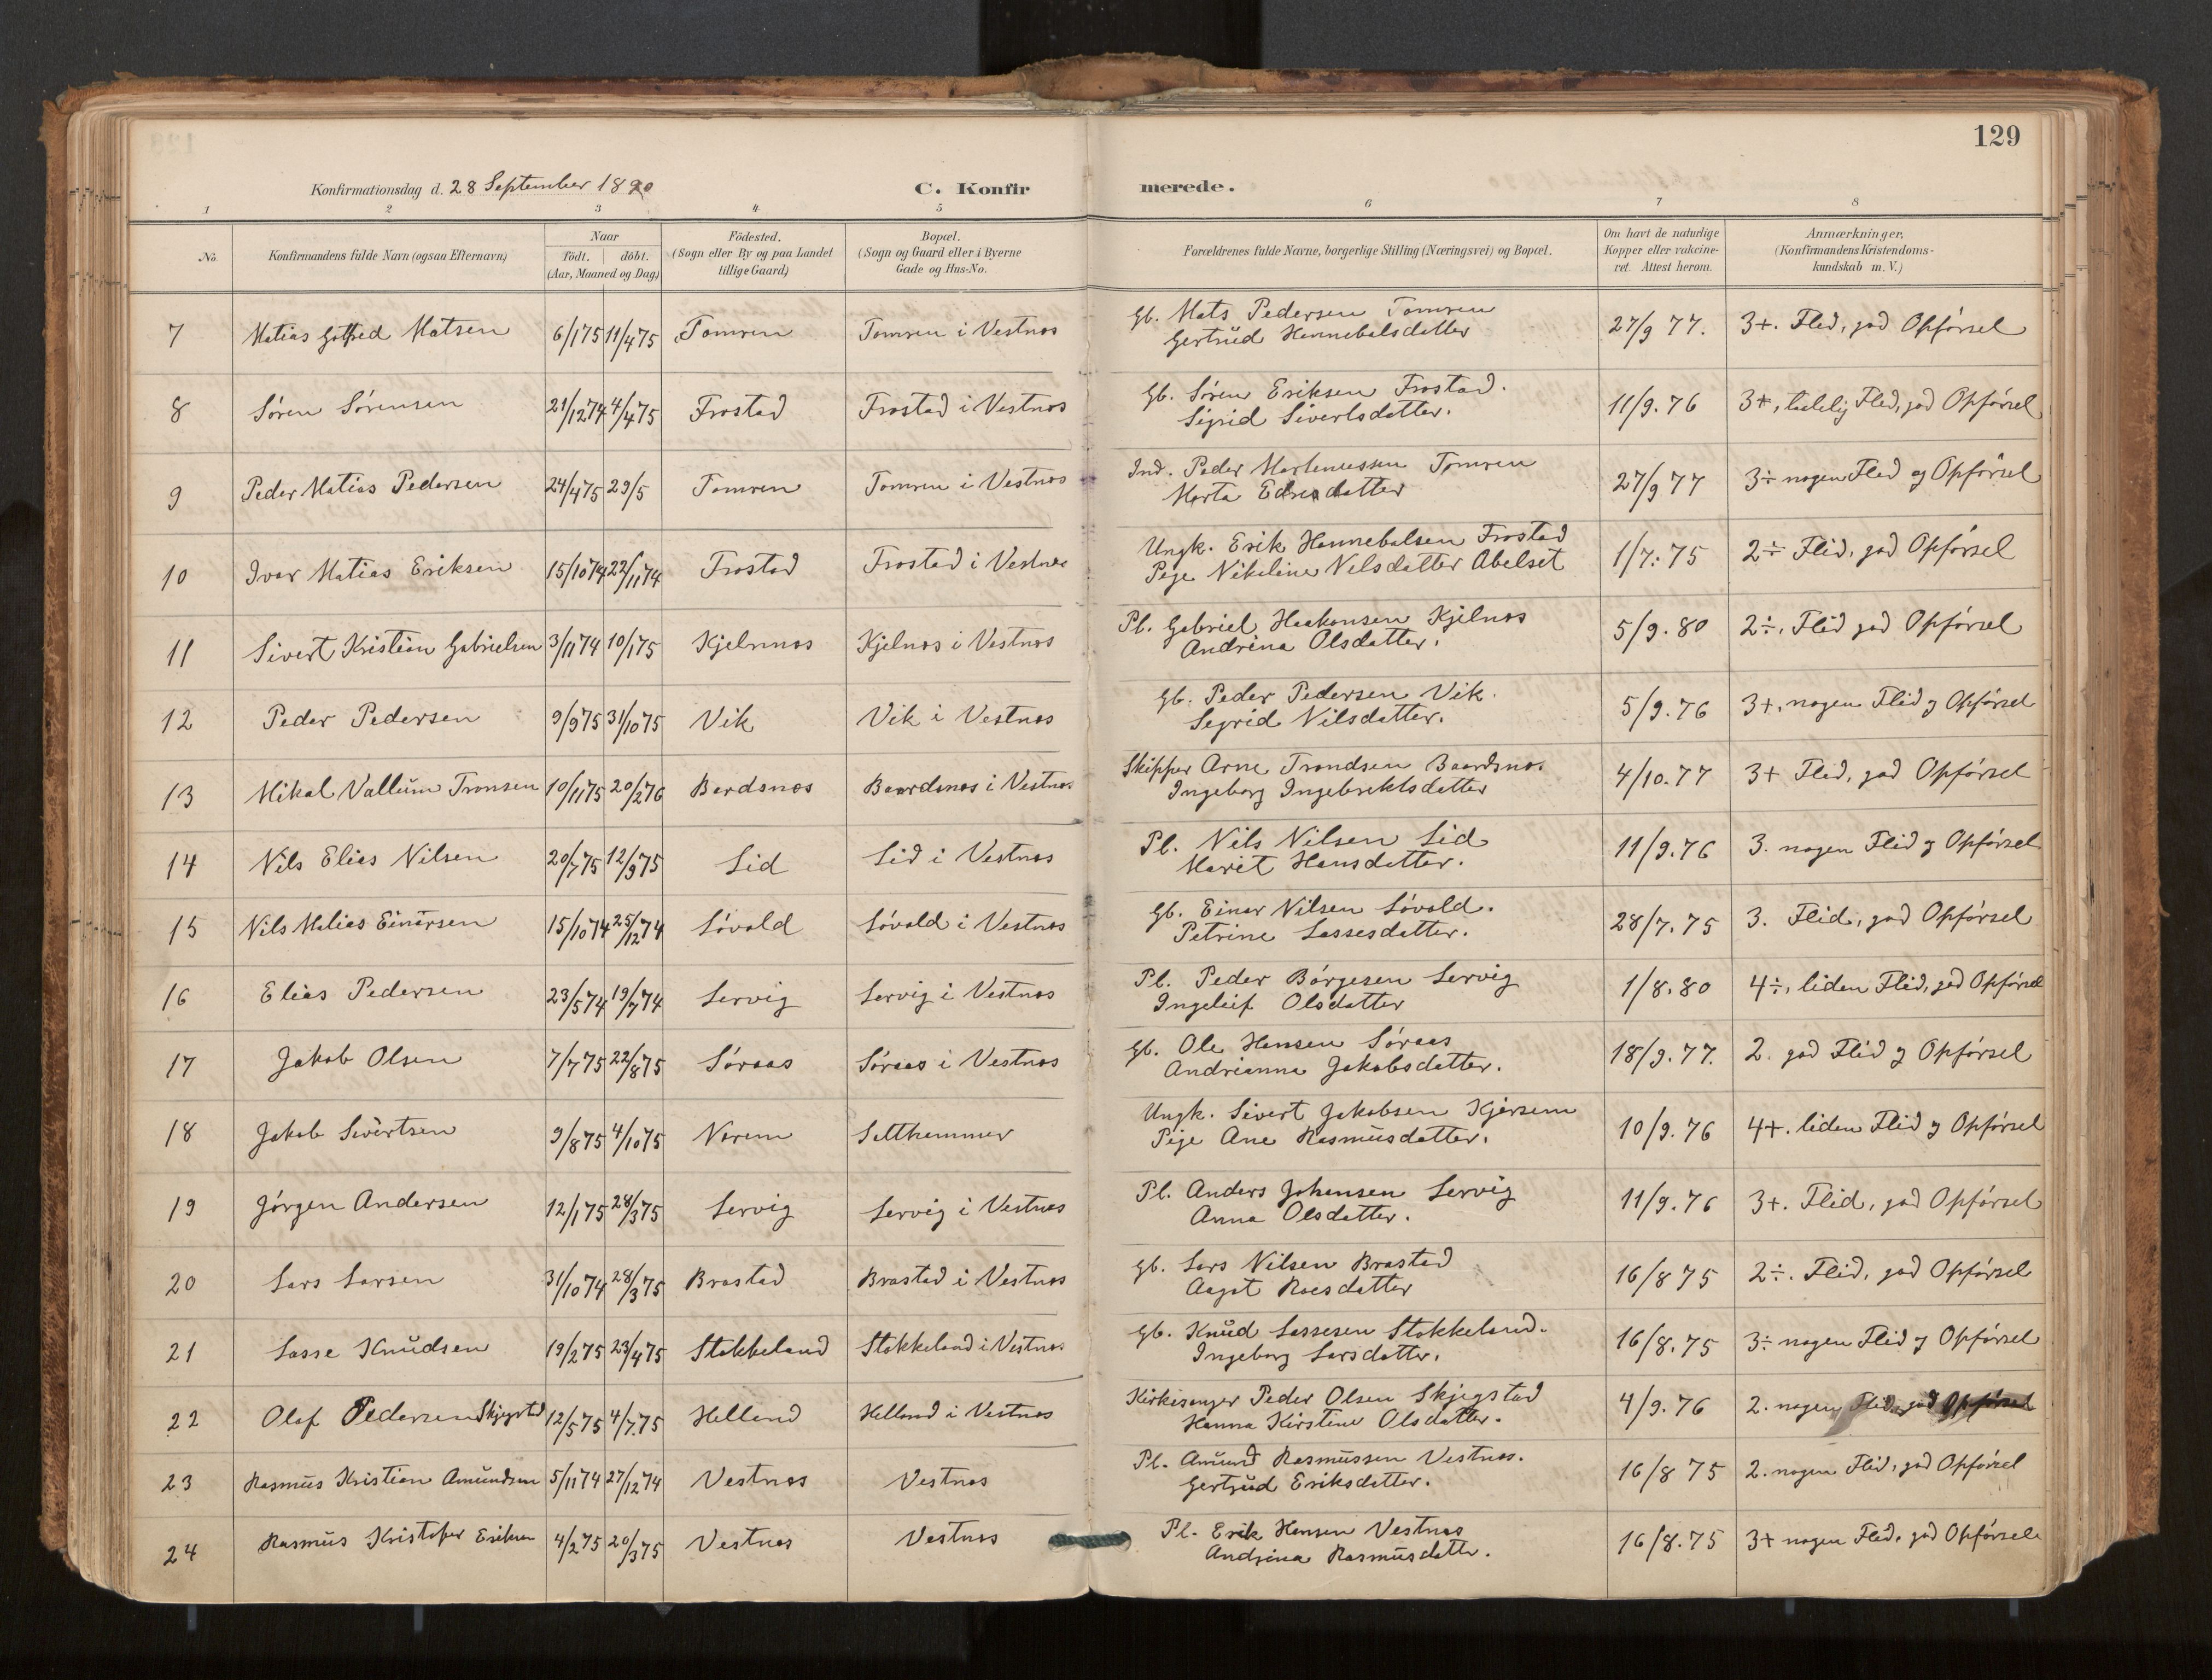 129
Konfirmationsdag d. 28 September 1890
C. Konfirmerede.
1 2 3 4 5 6 7 8
No. Konfirmandens fulde Navn (ogsaa Efternavn) Naar født. døbt. (Aar, Maaned og Dag) Födested. (Sogn eller By og paa Landet tillige Gaard) Bopæl. (Sogn og Gaard eller i Byerne Gade og Hus-No. Forældrenes fulde Navne, borgerlige Stilling (Næringsvei) og Bopæl. Om havt de naturlige Kopper eller vakcineret. Attest herom. Anmærkninger. (Konfirmandens Kristendomskundskab m. V.)
7 Matias Gotfred Matsen 6/1 75 11/4 75 Tomren Tomren i Vestnes Gb. Mats Pedersen Tomren 27/9 77. 3+. Flid, god Opførsel
Gertrud Hannebalsdatter
8 Søren Sørensen 21/12 74 4/4 75 Frostad Frostad i Vestnes Gb. Søren Eriksen Frostad. 11/9. 76 3+, taalelig Flid, god Opførsel
Sigrid Sivertsdatter.
9 Peder Matias Pedersen 24/4 75 29/5 Tomren Tomren i Vestnes Ind. Peder Martenussen Tomren 27/9 77 3÷ nogen Flid og Opførsel
Marta Edvesdatter
10 Ivar Matias Eriksen 15/10 74 22/11 74 Frostad Frostad i Vestnes Ungk. Erik Hannebalsen Frostad 1/7. 75 2÷ Flid, god Opførsel
Pige Nikoline Nilsdatter Abelset
11 Sivert Kristian Gabrielsen 3/11 74 10/1 75 Kjelnnes Kjelnes i Vestnes Pl. Gabriel Haakonsen Kjelnes 5/9. 80 2÷. Flid god Opførsel
Andrina Olsdatter.
12 Peder Pedersen 9/9 75 31/10 75 Vik Vik i Vestnes Gb. Peder Pedersen Vik. 5/9. 76 3+, nogen Flid og Opførsel
Segrid Nilsdatter.
13 Mikal Vallum Tronsen 10/11 75 20/2 76 Bardsnes Baardsnes i Vestnes Skipper Arne Trondsen Baardsnes. 4/10. 77 3+ Flid, god Opførsel
Ingeborg Ingebrektsdatter
14 Nils Elias Nilsen 20/7 75 12/9 75 Lid Lid i Vestnes Pl. Nils Nilsen Lid 11/9. 76 3. nogen Flid og Opførsel
Marit Hansdatter.
15 Nils Matias Einarsen 15/10 74 25/12 74 Løvold Løvold i Vestnes Gb. Einar Nilsen Løvold. 28/7. 75 3. Flid, god Opførsel
Petrine Lassesdatter.
16 Elias Pedersen 23/5 74 19/7 74 Lervig Lervig i Vestnes Pl. Peder Børgesen Lervig 1/8. 80 4÷, liden Flid, god Opførsel
Ingeleif Olsdatter
17 Jakob Olsen 7/7 75 22/8 75 Søraas Søraas i Vestnes Gb. Ole Hansen Søraas 18/9. 77. 2. god Flid og Opførsel
Andrianna Jakobsdatter.
18 Jakob Sivertsen 9/8 75 4/10 75 Norem Selthammer Ungk. Sivert Jakobsen Kjersem 10/9. 76 4+. liden Flid og Opførsel
Pige Ane Rasmusdatter.
19 Jørgen Andersen 12/1 75 28/3 75 Lervig Lervig i Vestnes Pl. Anders Johansen Lervig 11/9. 76 3+. Flid, god Opførsel
Anna Olsdatter.
20 Lars Larsen 31/10 74 28/3 75 Brastad Brastad i Vestnes Gb. Lars Nilsen Brastad 16/8 75 2÷. Flid, god Opførsel
Aagot Roesdatter
21 Lasse Knudsen 19/2 75 23/4 75 Stokkeland Stokkeland i Vestnes Gb. Knud Lassesen Stokkeland. 16/8. 75 3÷ nogen Flid og Opførsel
Ingeborg Larsdatter.
22 Olaf Pedersen Skjegstad 12/5 75 4/7 75 Helland Helland i Vestnes Kirkesanger Peder Olsen Skjegstad 4/9. 76 2. nogen Flid, god Opførsel
Hanna Kirstine Olsdatter.
23 Rasmus Kristian Amundsen 5/11 74 27/12 74 Vestnes Vestnes Pl. Amund Rasmussen Vestnes. 16/8 75 2. nogen Flid, god Opførsel
Gertrud Eriksdatter.
24 Rasmus Kristofer Eriksen 4/2 75 20/3 75 Vestnes Vestnes Pl. Erik Hansen Vestnes 16/8. 75 3+ nogen Flid, god Opførsel
Andrina Rasmusdatter.